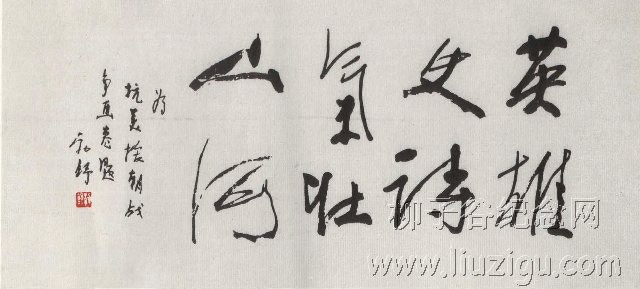 英雄
史詩
氣壯
山河
为
抗美援朝战
争画卷题
柳子谷纪念网
www.liuzigu.com